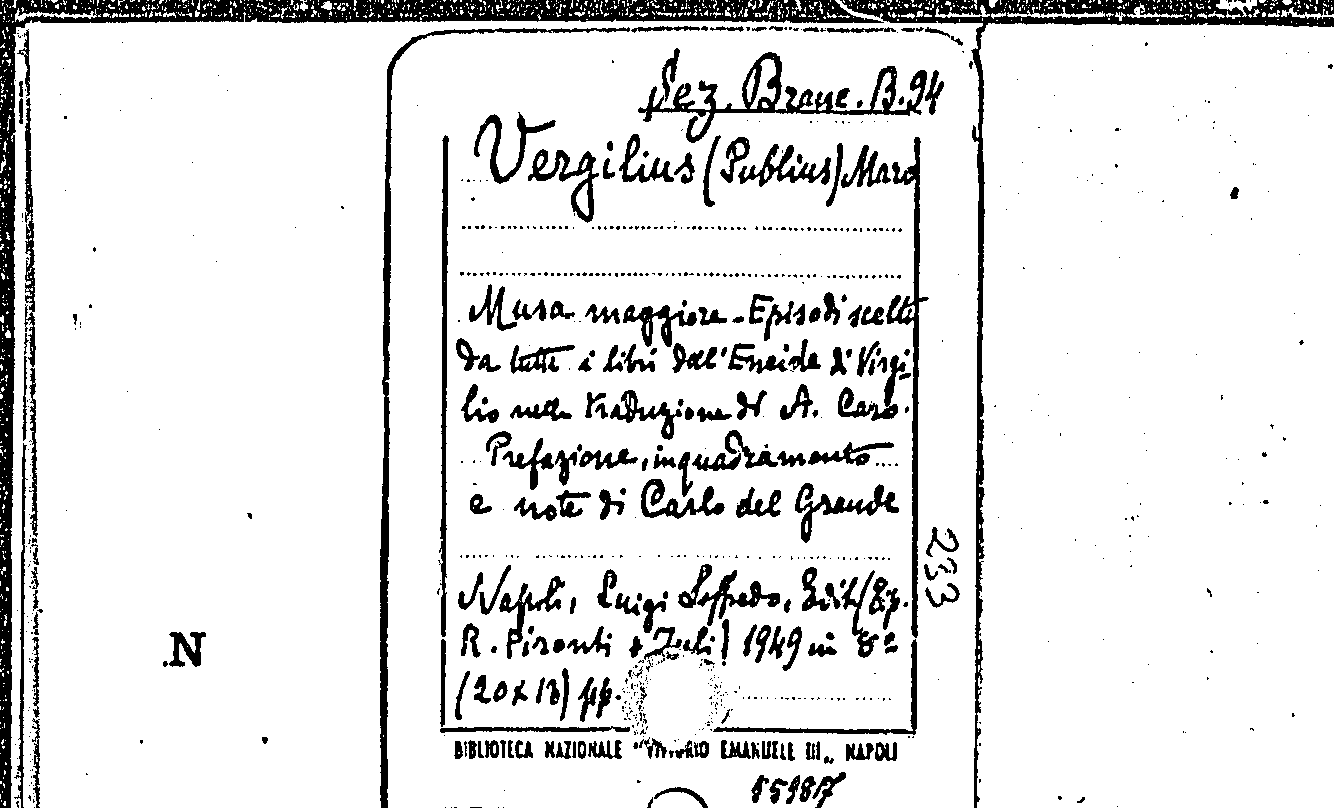 Sez. Branc. B. 94
Vergilius (Publius) Maro
Musa maggiore - Episodi scelti
da tutti i libri dell'Eneide di Virgi-
lio nella traduzione di A. Caro.
Prefazione, inquadramento
e note di Carlo del Grande
233
Napoli, Luigi Loffredo, Edit. (Tip.
R. Pironti & Figli) 1949 in 8°
(20 x 13) pp.
N
BIBLIOTECA NAZIONALE "VITTORIO EMANUELE III„ NAPOLI